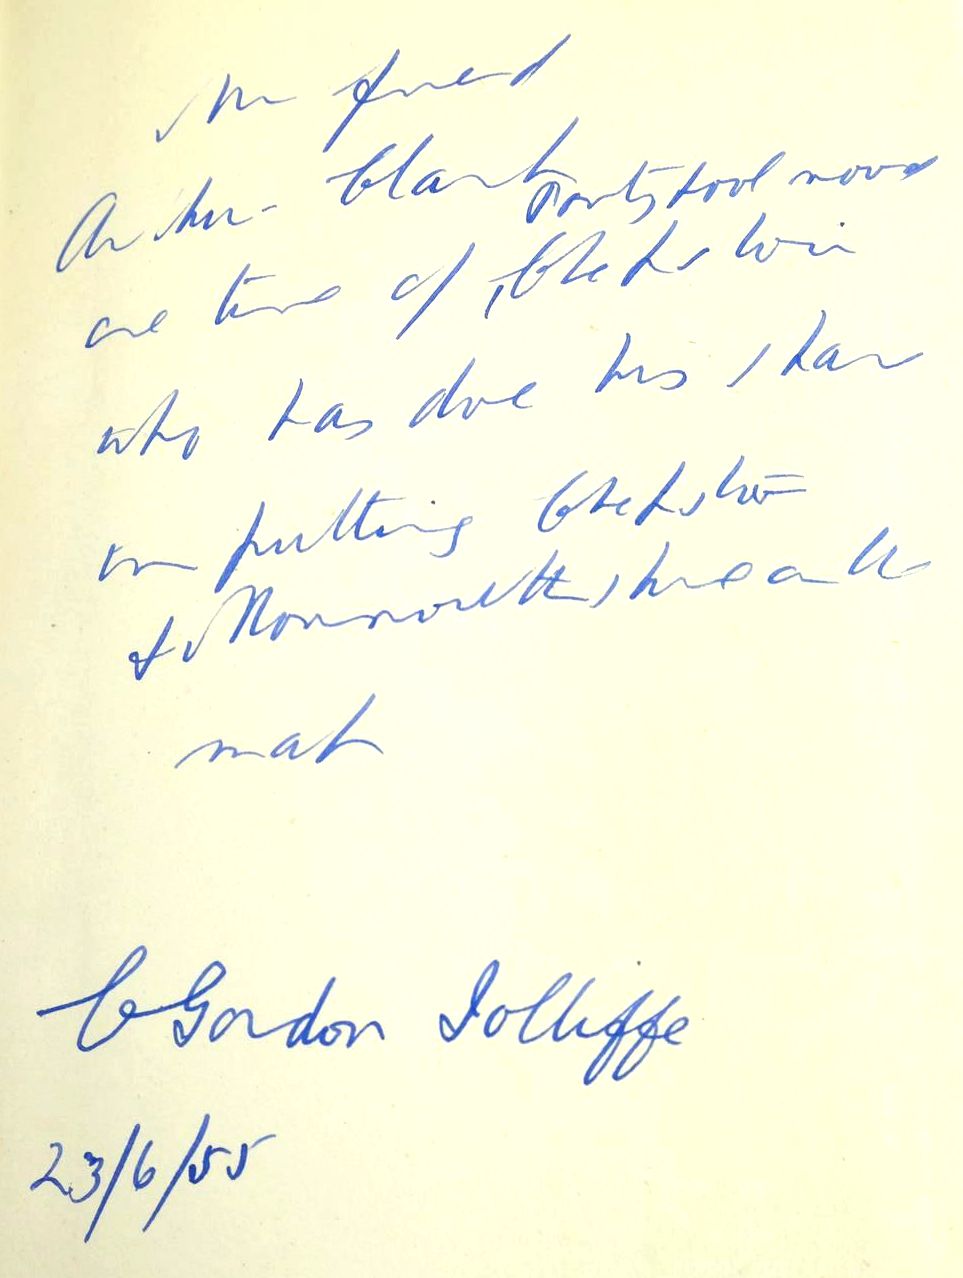 My friend
Arthur Clark
Pontypool now &
one time of Chepstow
who has done his share
in putting Chepstow
& Monmouthshire on the
map
C Gordon Jolliffe
23/6/55